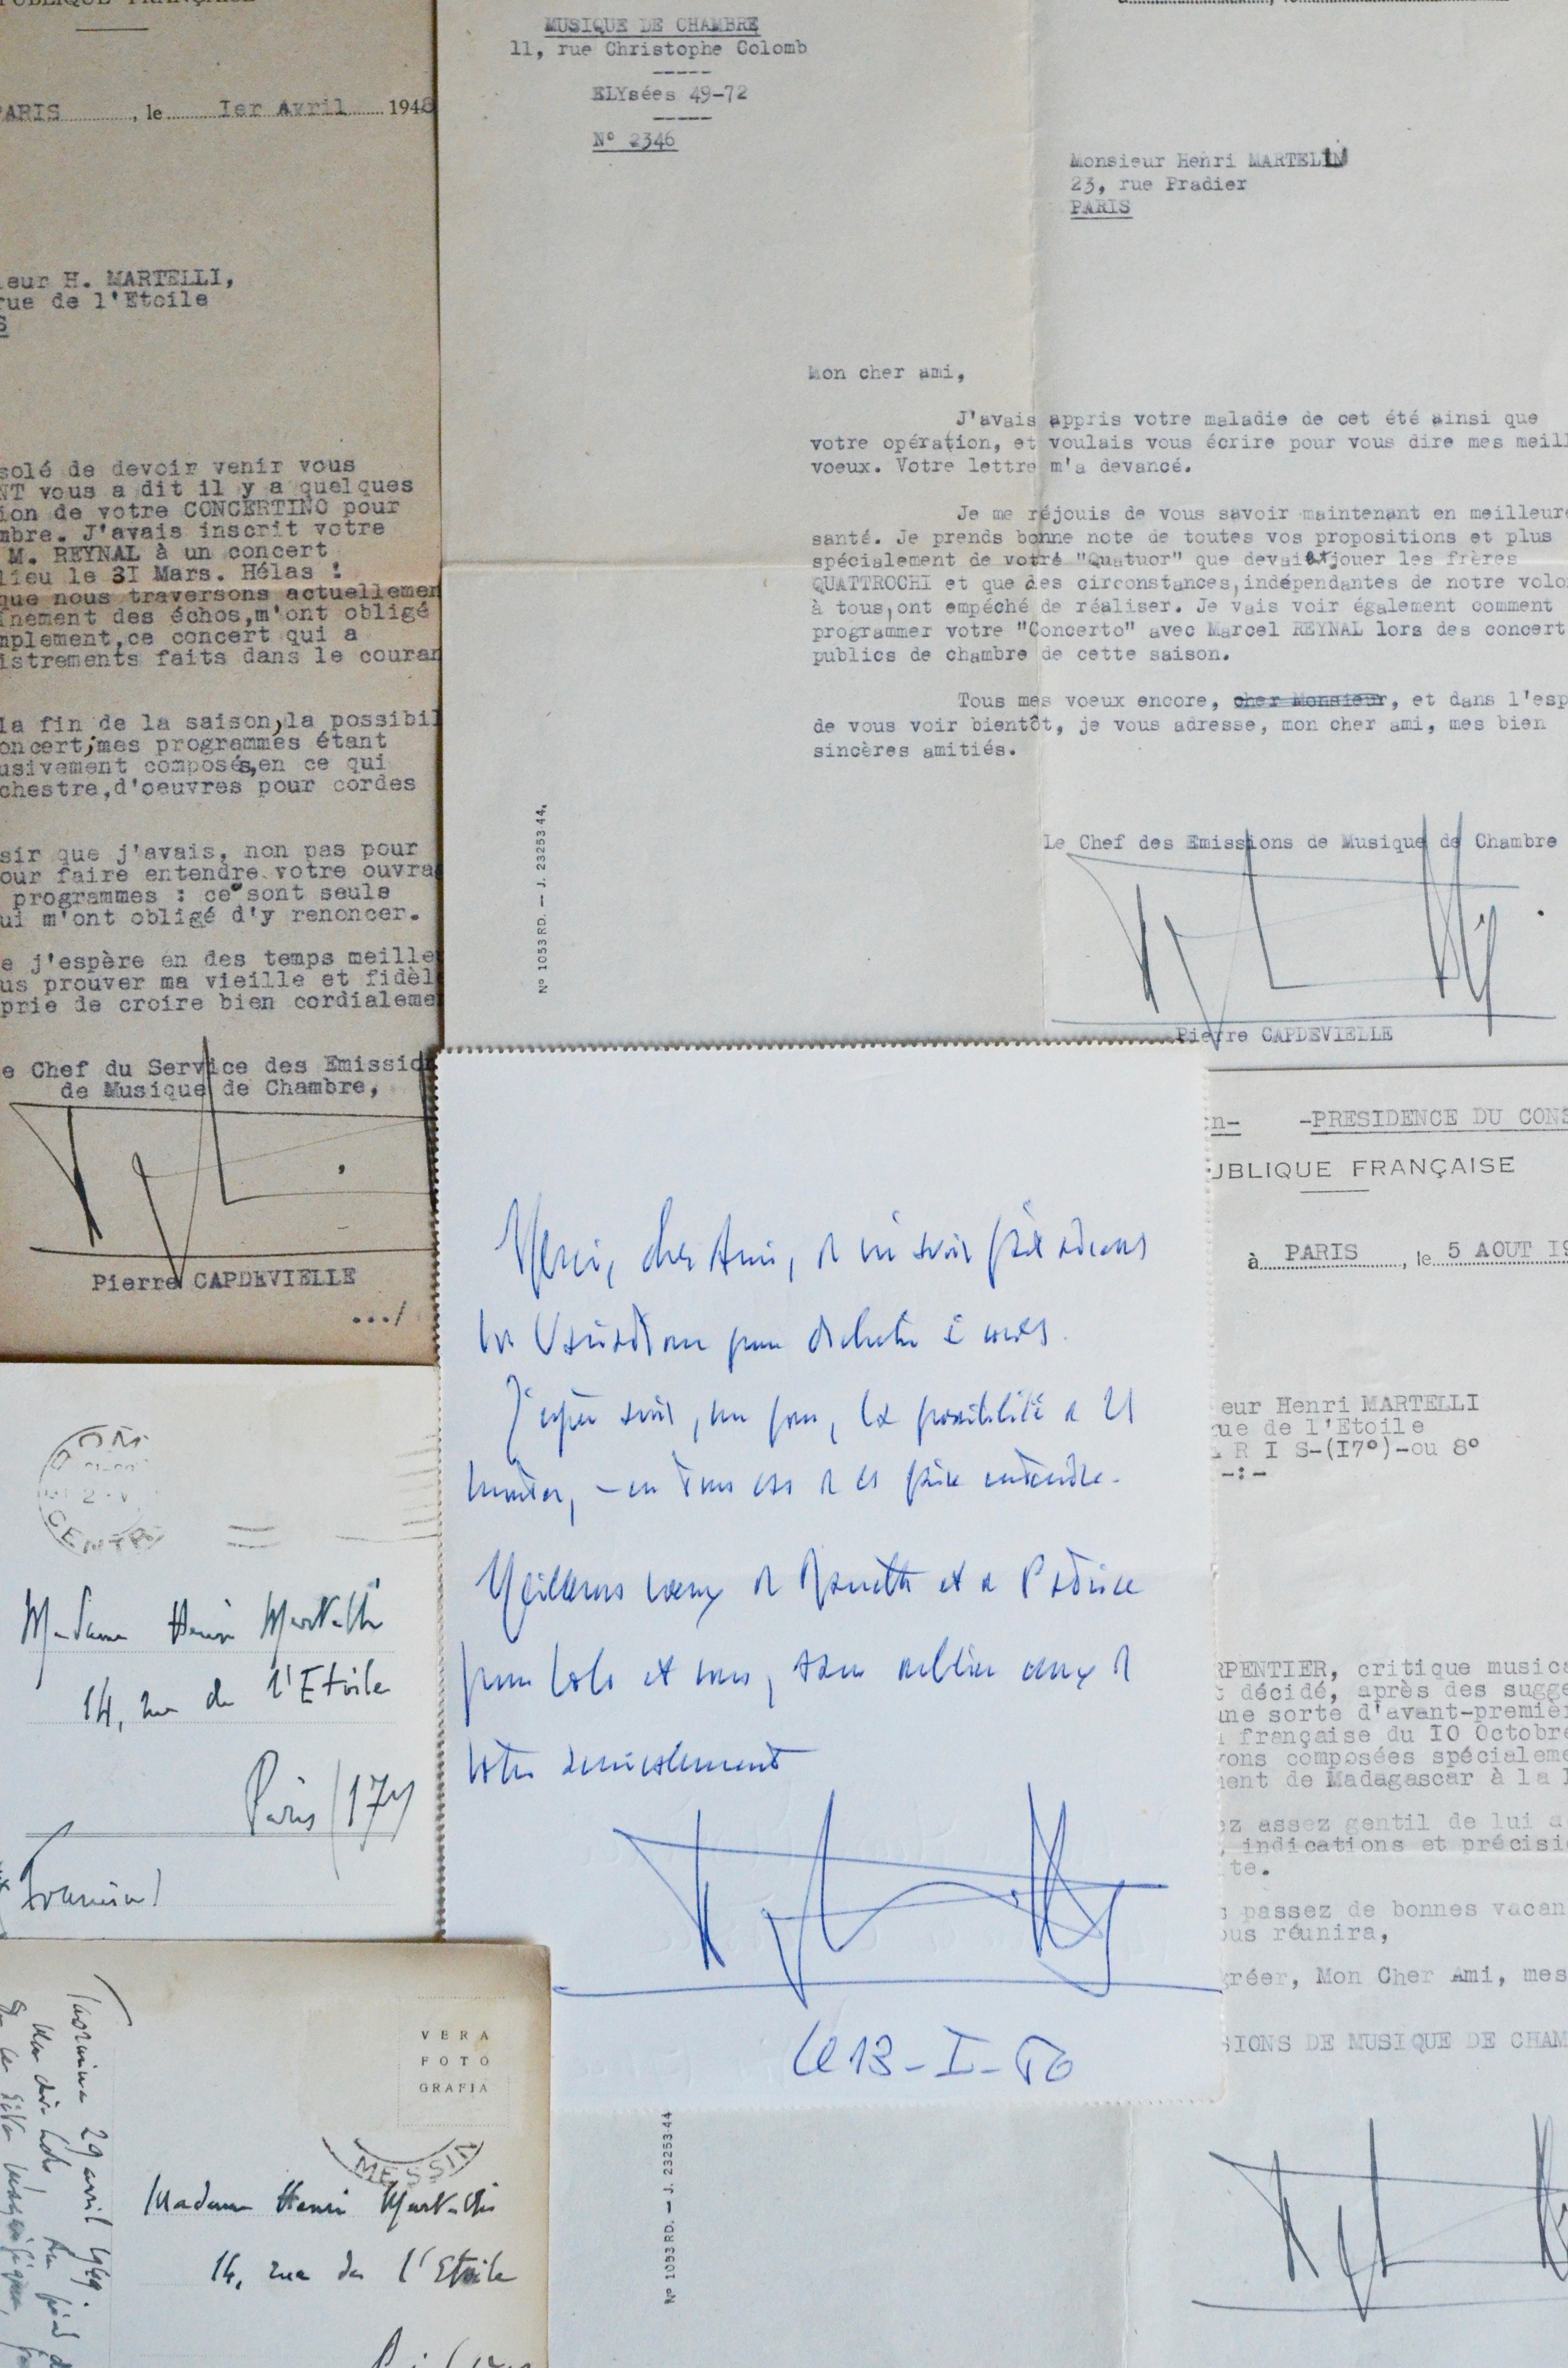 PUBLIQUE FRANÇAISE
PARIS, le 1er Avril 1948
ieur H. MARTELLI,
rue de l'Etoile
S
solé de devoir venir vous
NT vous a dit il y a quelques
ion de votre CONCERTINO pour
mbre. J'avais inscrit votre
M. REYNAL à un concert
lieu le 3I Mars. Hélas !
que nous traversons actuellemen
înement des échos,m'ont obligé
mplement,ce concert qui a
istrements faits dans le couran
la fin de la saison,la possibil
oncert;mes programmes étant
usivement composés,en ce qui
chestre,d'oeuvres pour cordes
sir que j'avais, non pas pour
our faire entendre votre ouvra
programmes : ce sont seule
ui m'ont obligé d'y renoncer.
e j'espère en des temps meille
us prouver ma vieille et fidèl
prie de croire bien cordialeme
e Chef du Service des Emission
de Musique de Chambre,
Pierre CAPDEVIELLE
.../
MUSIQUE DE CHAMBRE
11, rue Christophe Colomb
ELYsées 49-72
N° 2346
Monsieur Henri MARTELIN
23, rue Pradier
PARIS
Mon cher ami,
J'avais appris votre maladie de cet été ainsi que
votre opération, et voulais vous écrire pour vous dire mes meill
voeux. Votre lettre m'a devancé.
Je me réjouis de vous savoir maintenant en meilleure
santé. Je prends bonne note de toutes vos propositions et plus
spécialement de votre "Quatuor" que devaient jouer les frères
QUATTROCHI et que des circonstances,indépendantes de notre volo
à tous,ont empéché de réaliser. Je vais voir également comment
programmer votre "Concerto" avec Marcel REYNAL lors des concert
publics de chambre de cette saison.
Tous mes voeux encore, cher Monsieur, et dans l'esp
de vous voir bientôt, je vous adresse, mon cher ami, mes bien
sincères amitiés.
Le Chef des Emissions de Musique de Chambre
Pierre CAPDEVIELLE
N° 1053 RD. — J. 23253-44.
Merci, cher Ami, de m'avoir fait adresser
les Variations pour
J'espère avoir, un jour, la possibilité de les
monter, — en tous cas de les faire entendre.
Meilleurs voeux de et de Patrice
pour Lola et vous, sans oublier ceux de
votre amicalement
le 13-I-50
CENTR
Madame Henri Martelli
14, rue de l'Etoile
Paris (17e)
Taormina 29 avril 49.
VERA
FOTO
GRAFIA
MESSIN
Madame Henri Martelli
14, rue de l'Etoile
-PRESIDENCE DU CONS
UBLIQUE FRANÇAISE
à PARIS, le 5 AOUT 19
eur Henri MARTELLI
rue de l'Etoile
A R I S-(I7°)-ou 8°
-:-
RPENTIER, critique musica
t décidé, après des sugge
une sorte d'avant-premièr
française du IO Octobre
rons composées spécialeme
ment de Madagascar à la
ez assez gentil de lui a
, indications et précisi
ite.
s passez de bonnes vacan
ous réunira,
gréer, Mon Cher Ami, mes
SIONS DE MUSIQUE DE CHAM
N° 1053 RD. — J. 23253-44